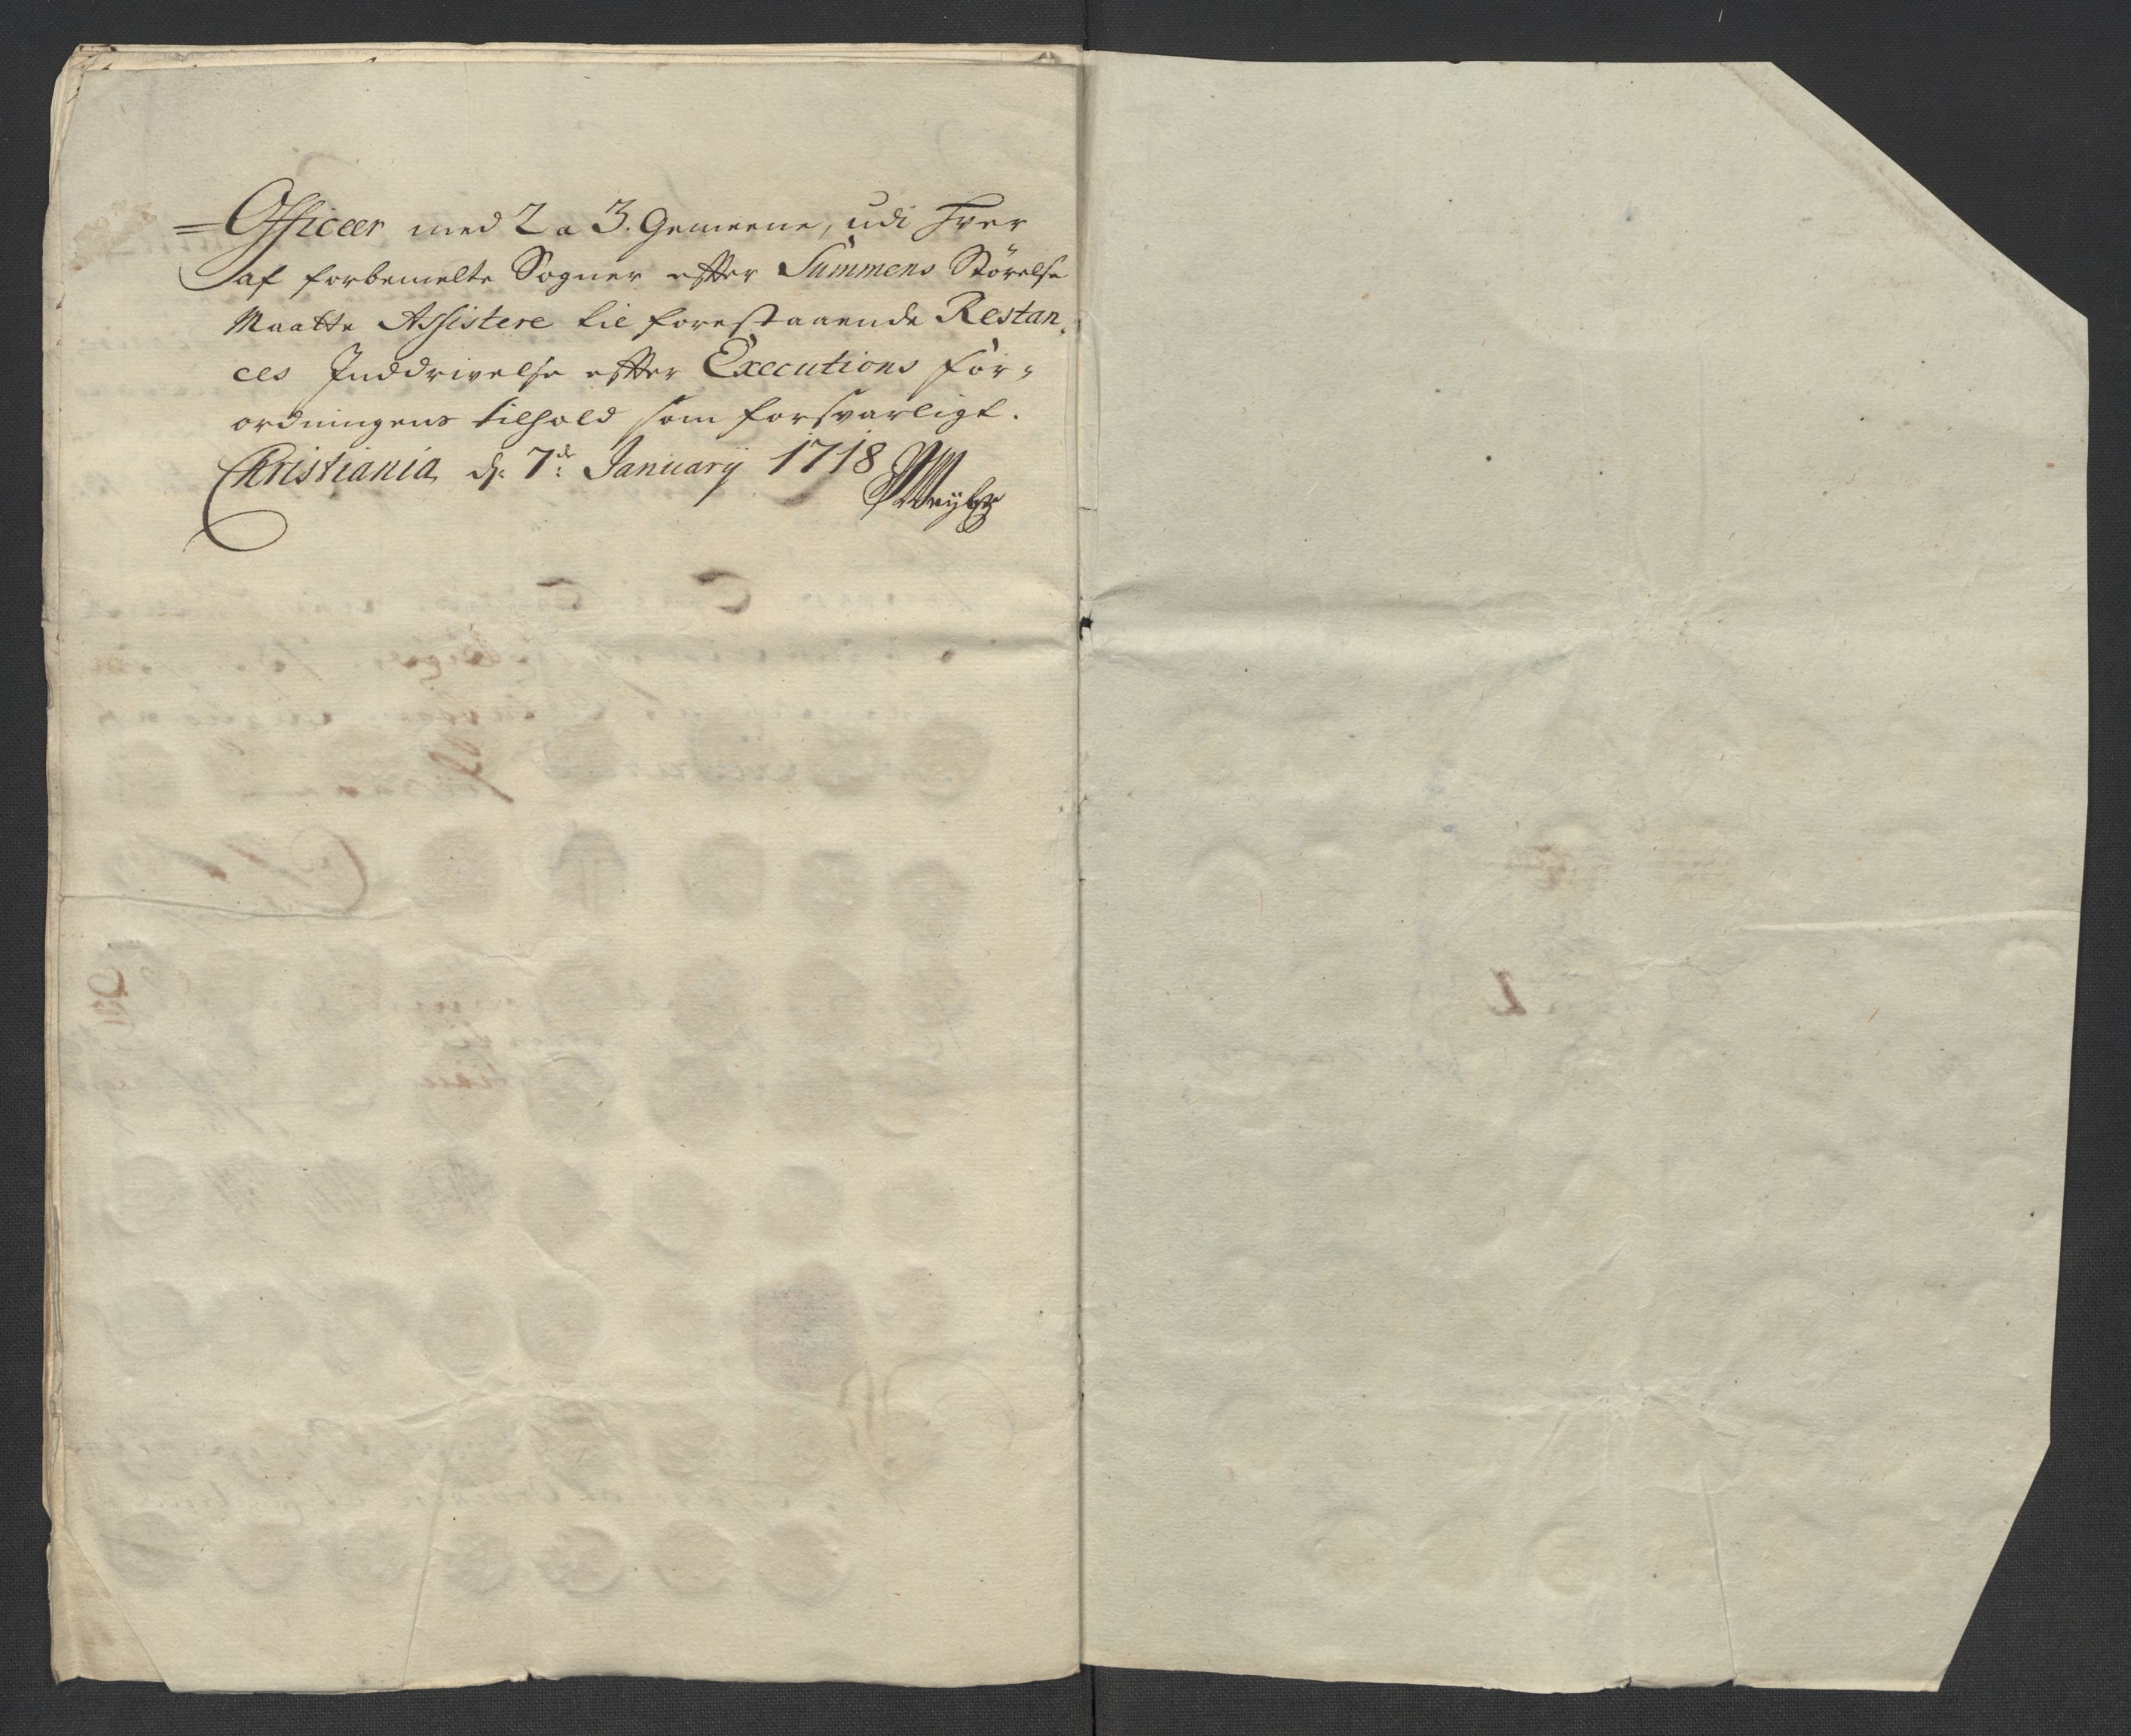 =Officeer med 2 a 3. Gemeene, udi hver
af forbemelte Sogner efter Summens Störelse
Maatte Assistere til forestaaende Restan,
ces Inddrivelse efter Executions For,
ordningens tilhold som forsvarligt.
Christiania, d: 7de: Januarij 1718